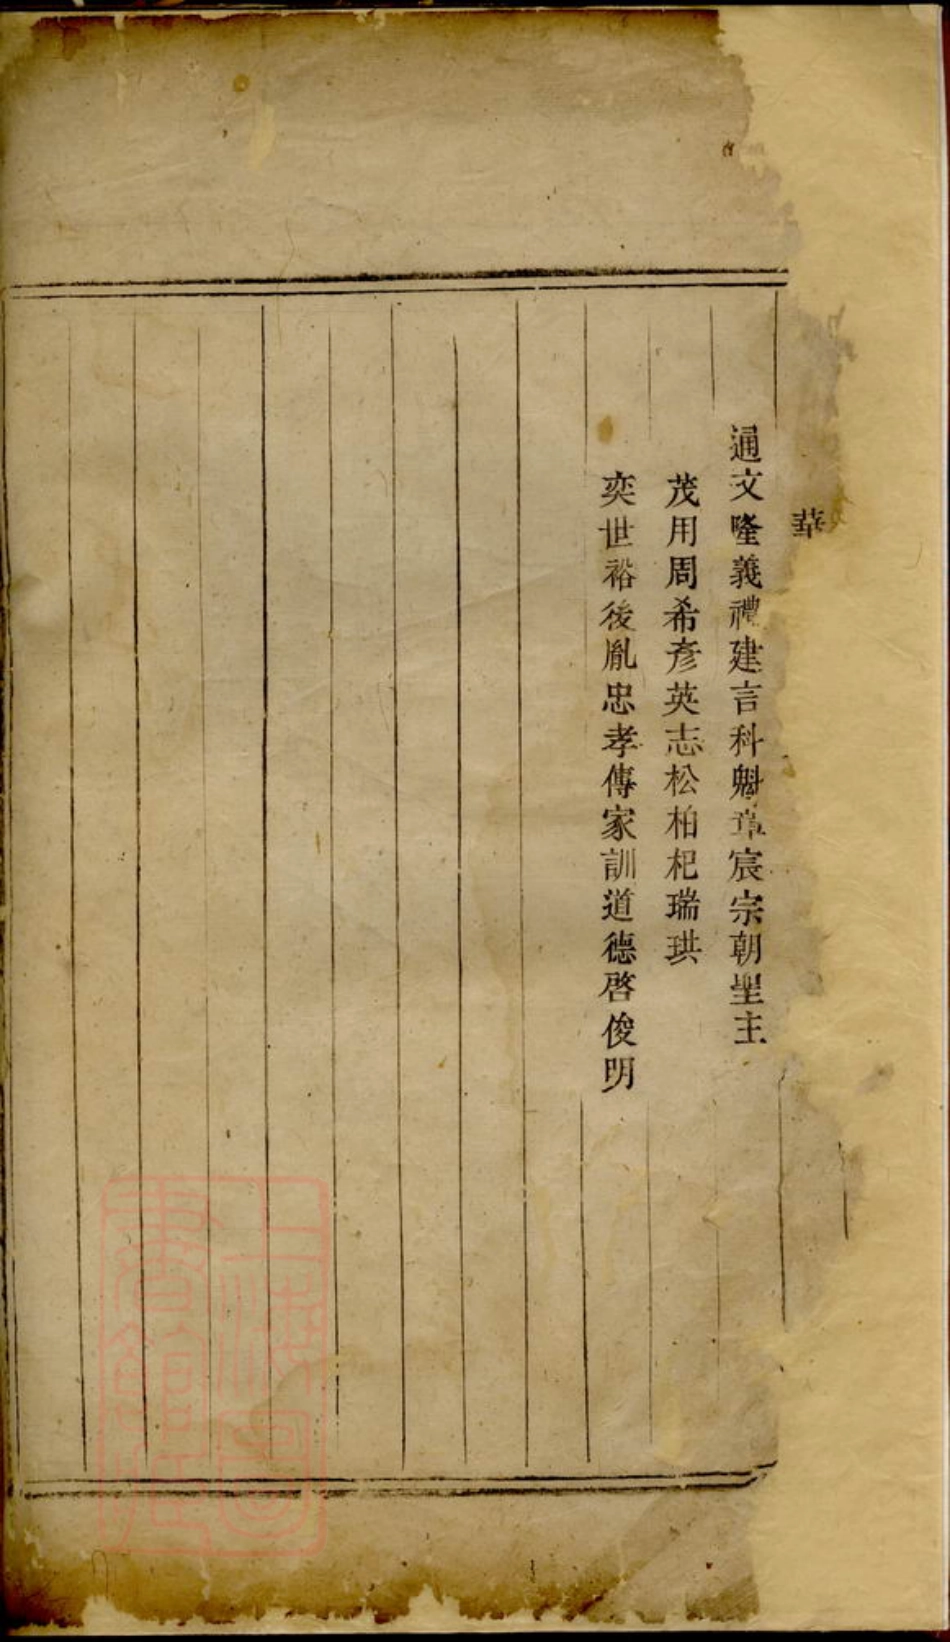 華
通文隆義禮建言科魁章宸宗朝聖主
茂用周希彥英志松柏杞瑞珙
奕世裕後胤忠孝傳家訓道德啓俊明
上海圖
書館藏